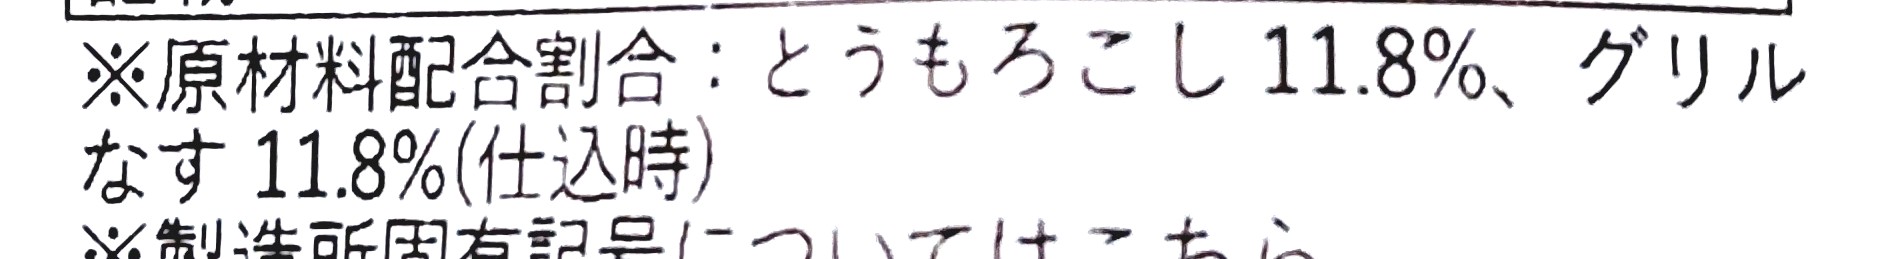 ※原材料配合割合：とうもろこし 11.8%、グリル
なす 11.8%(仕込時)
※製造所固有記号についてはこちら